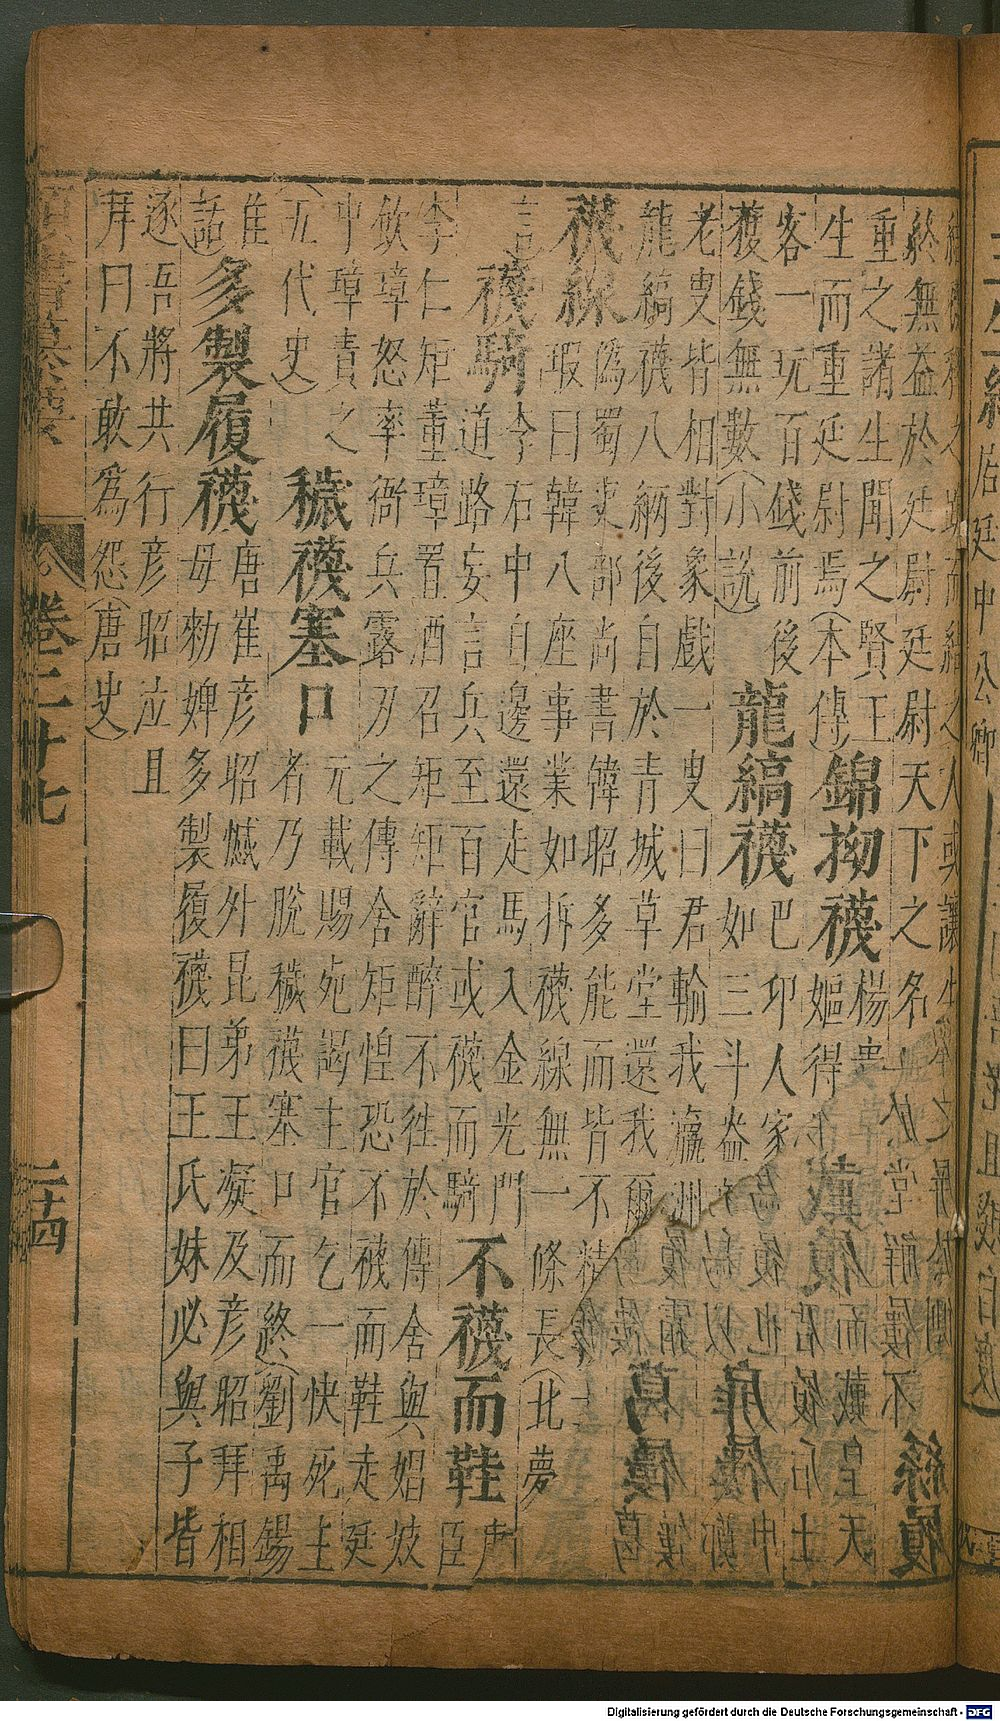 終無益於廷尉廷尉天下之名
重之諸生聞之賢王
生而重廷尉焉(本傳)
錦拗襪
楊貴
嫗得
客一玩百錢前後
獲錢無數(小說)
龍縞襪
巴卭人家
如三斗盎
老叟皆相對象戲一叟曰君輸我瀛洲
龍縞襪八緉後自於青城草堂還我爾
襪線
偽蜀吏部尚書韓昭多能而皆不精
瑕曰韓八座事業如拆襪線無一條長(北夢
言)
襪騎
令石中自邊還走馬入金光門
道路妄言兵至百官或襪而騎
不襪而鞋
唐
臣
李仁矩董璋置酒召矩矩辭醉不徃於傳舍與娼妓
飲璋怒率衙兵露刃之傳舍矩惶恐不襪而鞋走廷
中璋責之
(五代史)
穢襪塞口
元載賜死謁主官乞一快死主
者乃脫穢襪塞口而終(劉禹錫
佳
話)
多製履襪
唐崔彥昭憾外昆弟王凝及彥昭拜相
母勑婢多製履襪曰王氏妹必與子皆
逐吾將共行彥昭泣且
拜曰不敢為怨(唐史)
卷二十七
二十四
Digitalisierung gefördert durch die Deutsche Forschungsgemeinschaft - DFG